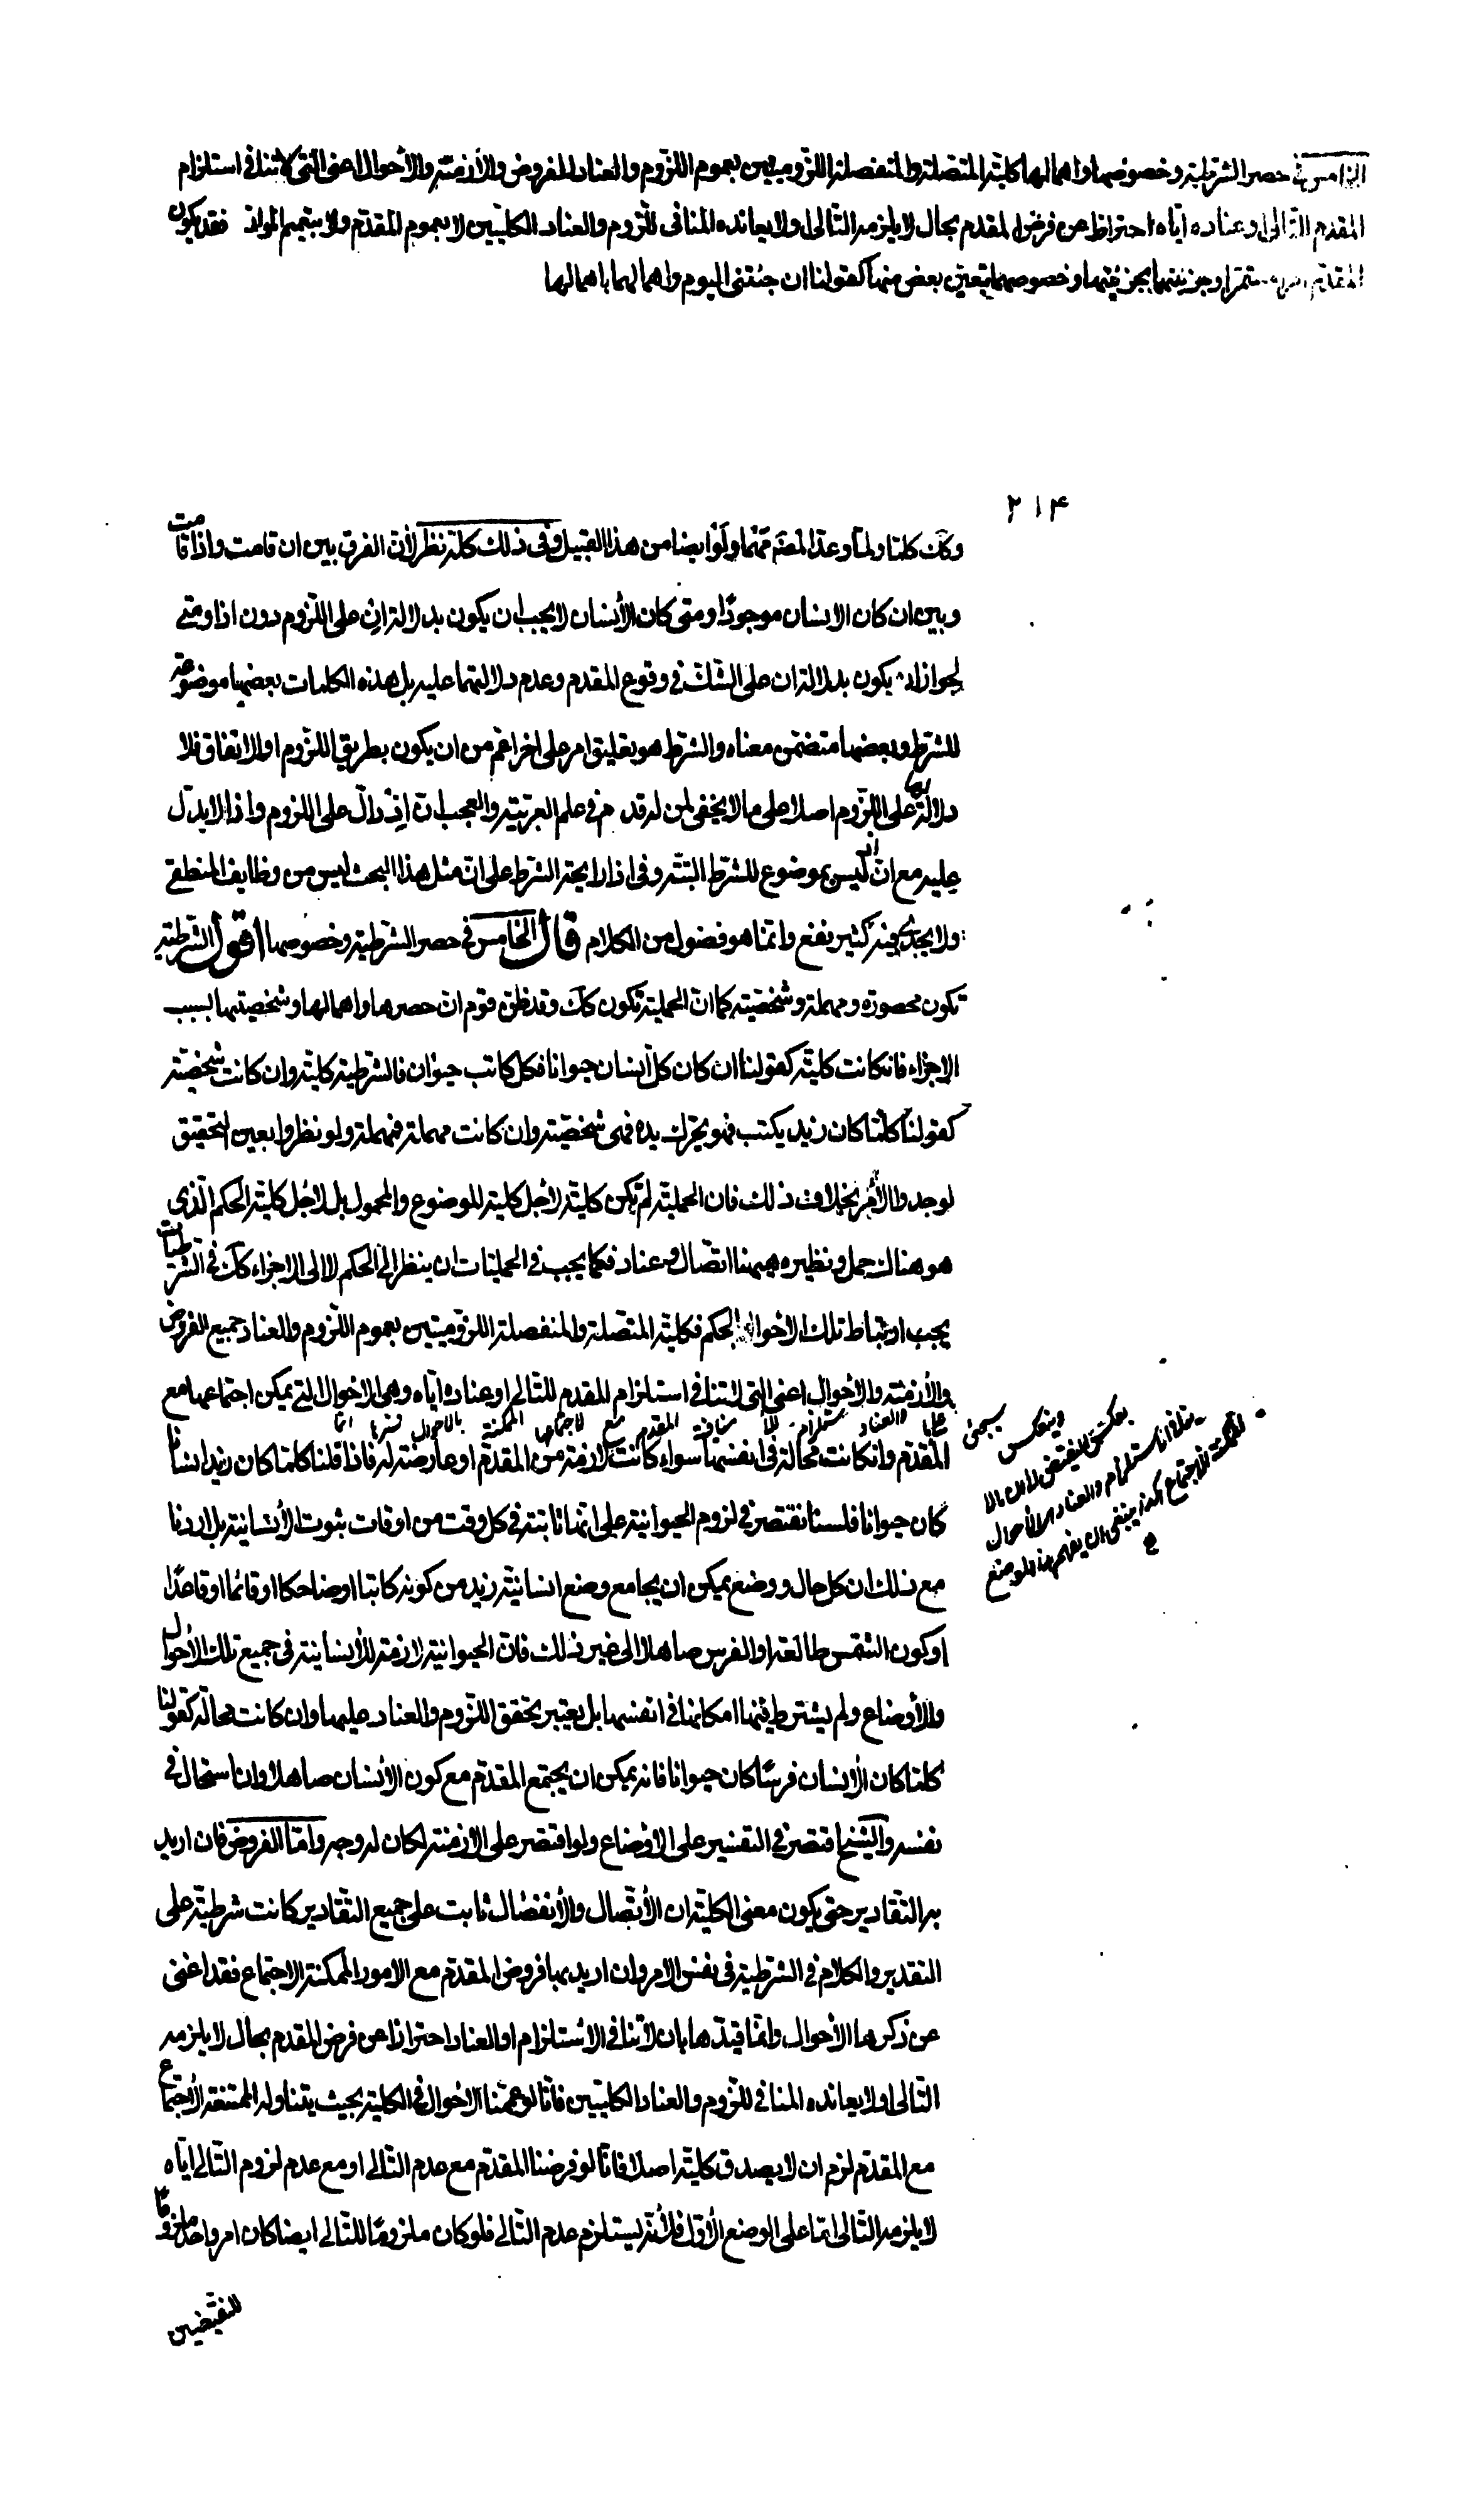 الخامس في حصر الشرطية وخصوصها واهمالها كلية المتصلة والمنفصلة اللزوميتين بعموم اللزوم والعناد للفروض والأزمنة والأحوال اعنى التي لا تنافى استلزام
المقدم التالى او عناده اياه احترازا عن فرض المقدم بحال لا يلزمه التالى او لا يعانده المنافى للزوم والعناد الكليتين لا بعموم المقدم ولا بتعميم المواد فقد يكون
المقدم مستمرا وجزئيتهما بجزئيتها وخصوصهما بتعين بعض منها كقولنا ان جئتنى اليوم واهمالهما باهمالها
٢١٤
وكك كلما ولما وعد المصنف مهما ولو ايضا من هذا القبيل وفى ذلك كله نظر لأن الفرق بين ان قامت واذا قامت
وبين ان كان الانسان موجودا ومتى كان الأنسان لا يجب ان يكون بدلالة ان على اللزوم دون اذا ومتى
لجواز ان يكون بدلالة ان على الشك في وقوع المقدم وعدم دلالتهما عليه بل هذه الكلمات بعضها موضوعة
للشرط وبعضها متضمن معناه والشرط هو تعليق امر على اخر اعم من ان يكون بطريق اللزوم او الاتفاق فلا
دلالة لها على اللزوم اصلا على ما لا يخفى لمن له قدم في علم العربية والعجب ان اذ دال على اللزوم واذا لا يدل
عليه مع ان اذ ليس بموضوع للشرط البتة وفى اذا رايحة الشرط على ان مثل هذا البحث ليس من وظايف المنطقى
ولا يجدى فيه كثير نفع وانما هو فضول من الكلام قال الخامس في حصر الشرطية وخصوصها اقول الشرطية
تكون محصورة ومهملة وشخصية كما ان الحملية تكون كك وقد ظن قوم ان حصرها واهمالها وشخصيتها بسبب
الاجزاء فان كانت كلية كقولنا ان كان كل انسان حيوانا فكل كاتب حيوان فالشرطية كلية وان كانت شخصية
كقولنا كلما كان زيد يكتب فهو يحرك يده فهى شخصية وان كانت مهملة فمهملة ولو نظروا بعين التحقيق
لوجدوا الأمر بخلاف ذلك فان الحملية لم تكن كلية لأجل كلية الموضوع والمحمول بل لاجل كلية الحكم الذى
هو هناك حمل ونظيره هيهنا اتصال وعناد فكما يجب في الحمليات ان ينظر الى الحكم لا الى الاجزاء كك في الشرطيات
يجب ارتباط تلك الاحوال بالحكم فكلية المتصلة والمنفصلة اللزوميتين بعموم اللزوم والعناد جميع الفروض
والأزمنة والاحوال اعنى التى لا تنافى استلزام المقدم للتالى او عناده اياه وهى الاحوال التى يمكن اجتماعها مع
انما فسرنا الاحوال بالممكنة لاجتماعها مع المقدم
المقدم وان كانت محالة فى انفسها سواء كانت لازمة من المقدم او عارضة له فاذا قلنا كلما كان زيد انسانا
كان حيوانا فلسنا نقتصر في لزوم الحيوانية على انها ثابتة فى كل وقت من اوقات ثبوت الأنسانية بل اردنا
مع ذلك ان كل حال ووضع يمكن ان يجامع وضع انسانية زيد من كونه كاتبا او ضاحكا او قائما او قاعدا
او كون الشمس طالعة او الفرس صاهلا الى غير ذلك فان الحيوانية لازمة للأنسانية فى جميع تلك الأحوال
والأوضاع ولم يشترط فيها امكانها في انفسها بل يعتبر تحقق اللزوم والعناد عليها وان كانت محالة كقولنا
كلما كان الأنسان فرسا كان حيوانا فانه يمكن ان يجتمع المقدم مع كون الأنسان صاهلا وان استحال في
نفسه والشيخ اقتصر في التفسير على الاوضاع ولو اقتصر على الازمنة لكان له وجه واما الفروض فان اريد
به التقادير حتى يكون معنى الكلية ان الأتصال والأنفصال ثابت على جميع التقادير كانت شرطية على
التقدير والكلام في الشرطية فى نفس الامر وان اريد بها فروض المقدم مع الامور الممكنة الاجتماع فقد اغنى
عن ذكرها الأحوال وانما قيدها بان لا تنافى الاستلزام او العناد احترازا عن فرض المقدم بحال لا يلزمه
التالى او لا يعانده المنافى للزوم والعناد الكليتين فانا لو عممنا الاحوال في الكلية بحيث يتناول الممتنعة الأجتماع
مع المقدم لزم ان لا يصدق كلية اصلا فانا لو فرضنا المقدم مع عدم التالى او مع عدم لزوم التالى اياه
لا يلزمه التالى اما على الوضع الأول فلأنه يستلزم عدم التالى فلو كان ملزوما للتالى ايضا كان امر واحد ملزوما
للنقيضين